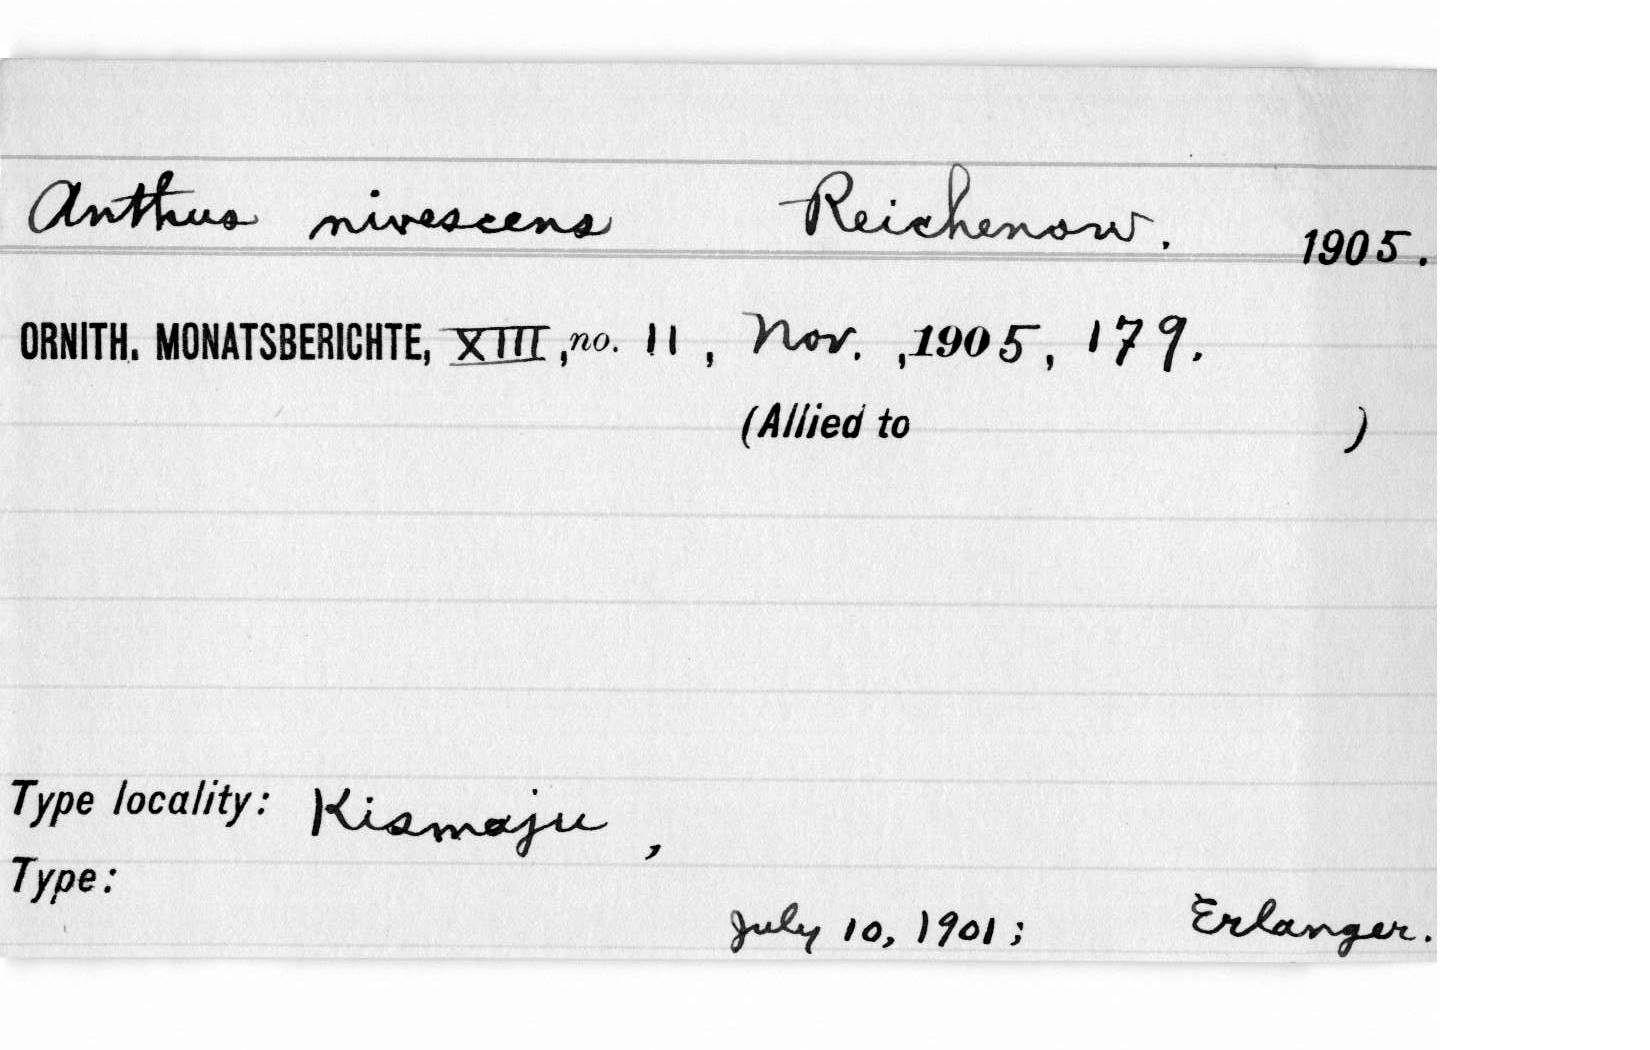 Anthus nivescens Reichenow. 1905.
ORNITH. MONATSBERICHTE, XIII, no. 11, Nov. ,1905, 179.
(Allied to )
Type locality: Kismaju,
Type:
July 10, 1901; Erlanger.